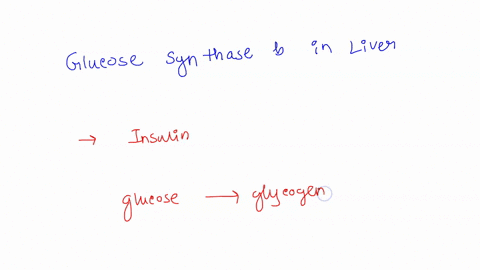 Glucose synthase b in Liver
→ Insulin
glucose → glycogen